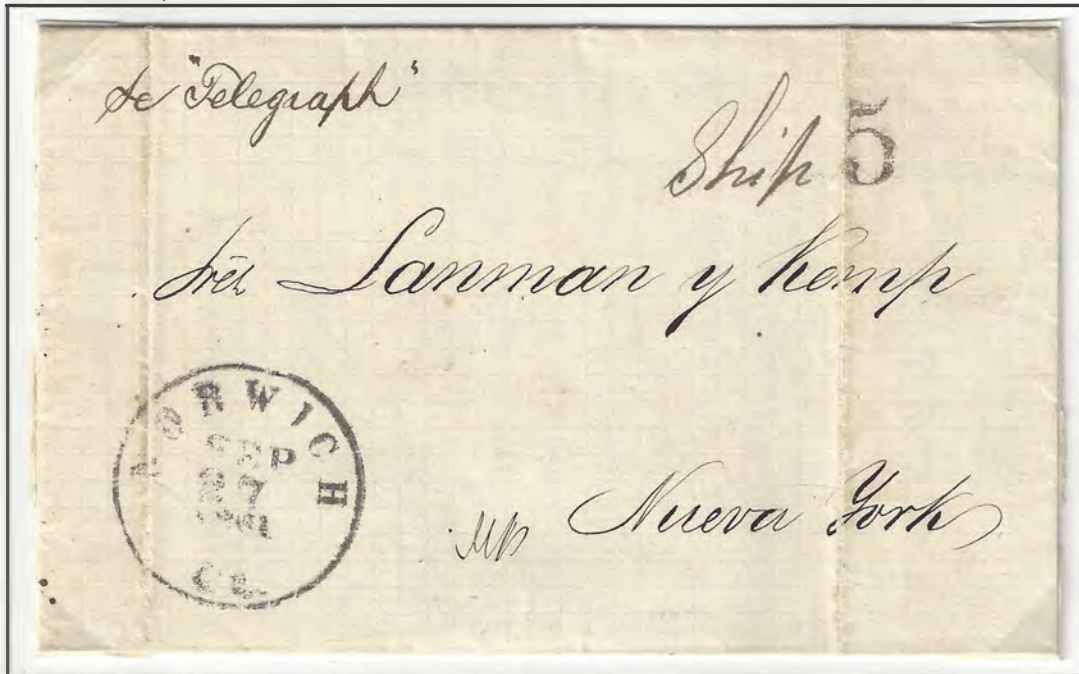 "Telegraph"
Ship 5
Lanman y Kemp
NORWICH
SEP
27
1861
Ct.
Nueva York